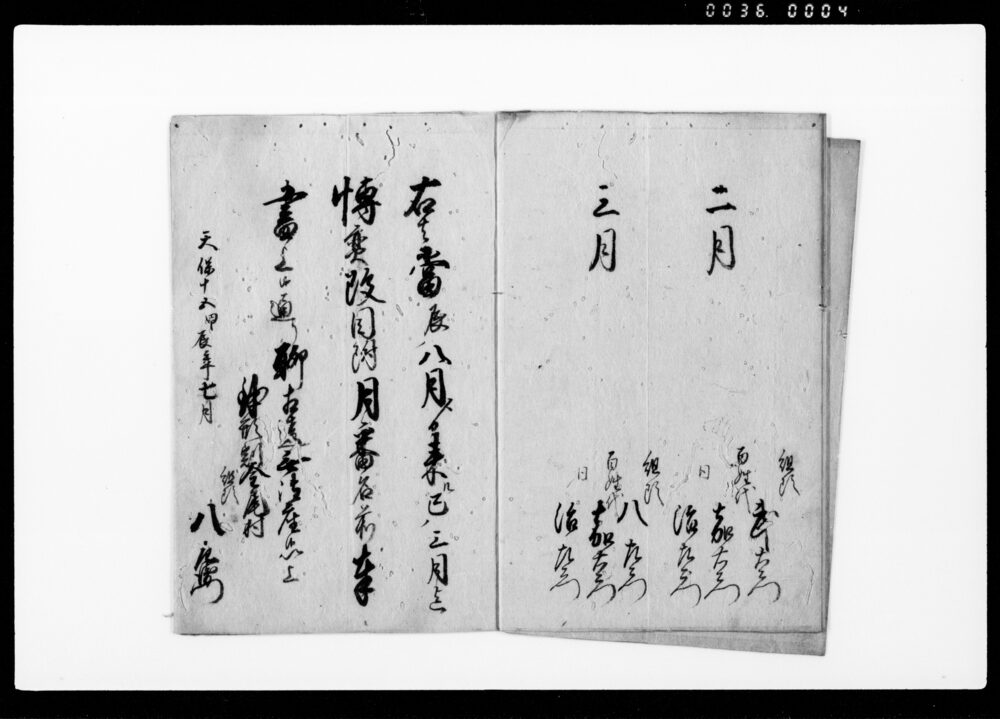 0036.0004
二月
組頭
武右衛門
百姓代
嘉右衛門
同
治左衛門
三月
組頭
八左衛門
百姓代
嘉右衛門
同
治左衛門
右者當辰八月ゟ来巳ノ三月迄
博奕改目附月番名前奉
書上候通り聊相違無御座候以上
村
天保十五甲辰年七月
組頭
八